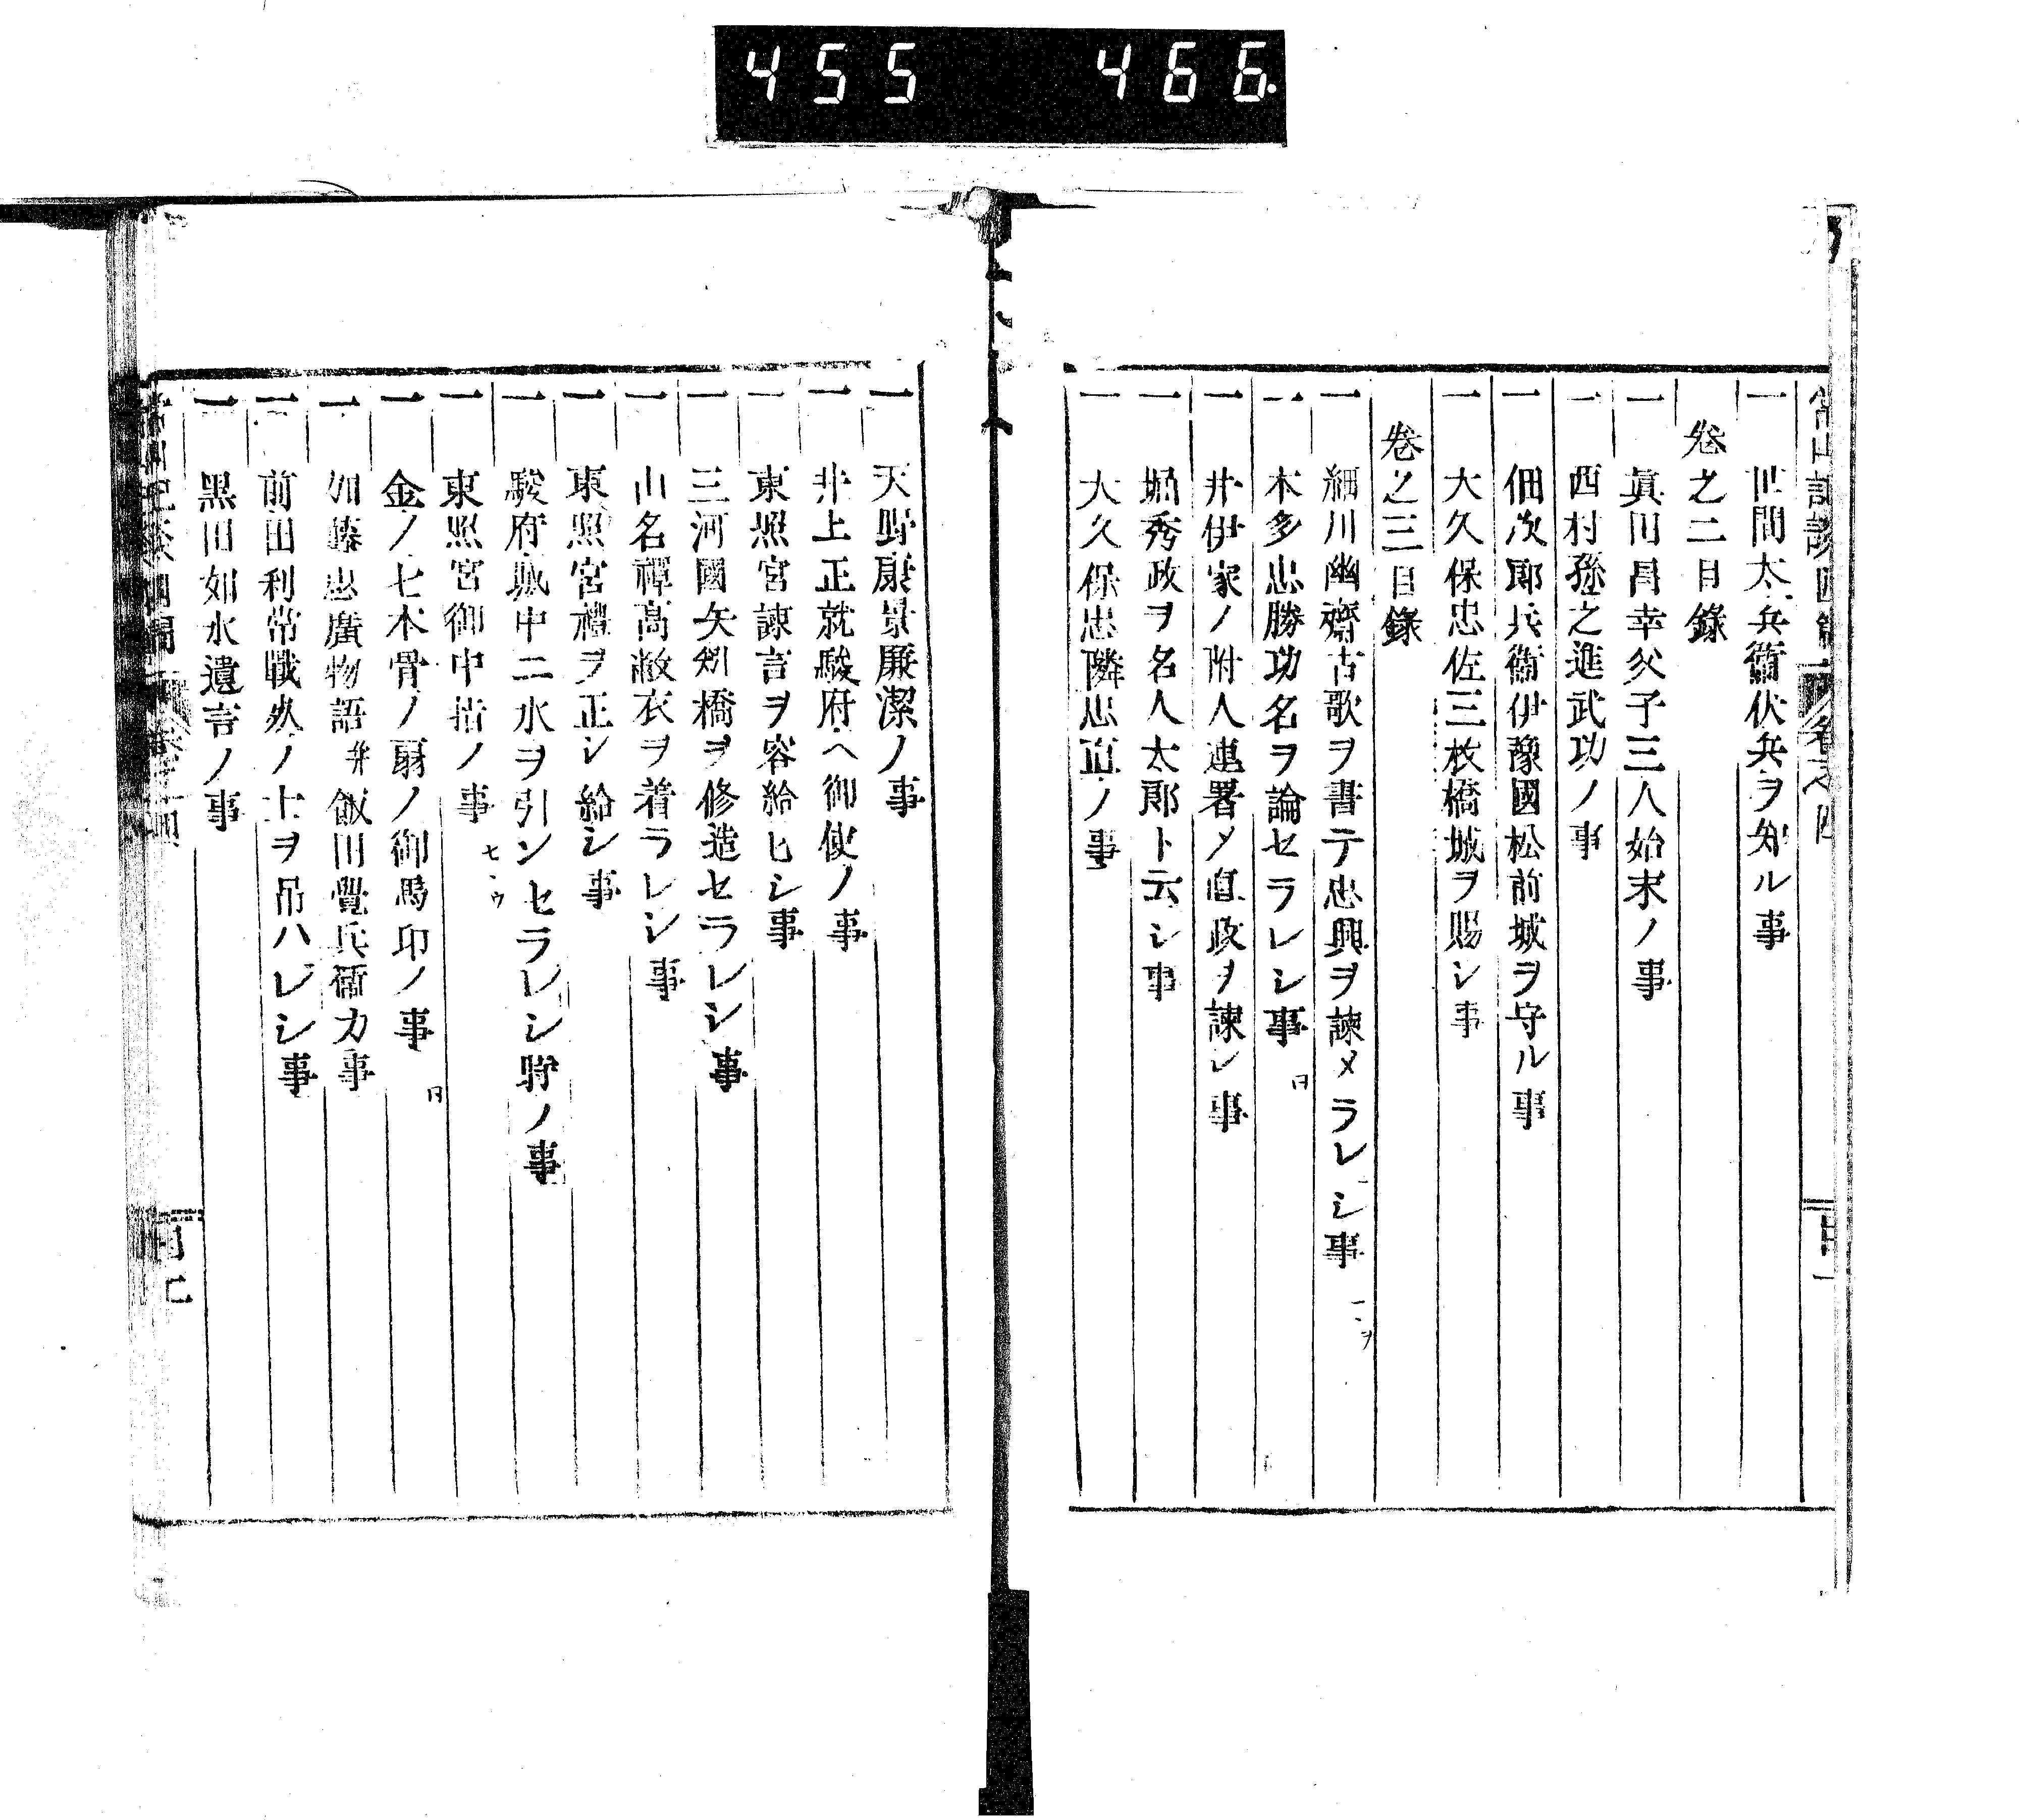 455 466.
一 世間太兵衞伏兵ヲ知ル事
卷之二目錄
一 眞田昌幸父子三人始末ノ事
一 西村孫之進武功ノ事
一 佃次郎兵衞伊豫國松前城ヲ守ル事
一 大久保忠佐三枚橋城ヲ賜シ事
卷之三目錄
一 細川幽齋古歌ヲ書テ忠興ヲ諫メラレシ事
一 本多忠勝功名ヲ論セラレシ事
一 井伊家ノ附人連署メ直政ヲ諫シ事
一 堀秀政ヲ名人太郎ト云シ事
一 大久保忠隣忠直ノ事
一 天野康景廉潔ノ事
一 井上正就駿府ヘ御使ノ事
一 東照宮諫言ヲ容給ヒシ事
一 三河國矢矧橋ヲ修造セラレシ事
一 山名禪高敝衣ヲ着ラレシ事
一 東照宮禮ヲ正シ給シ事
一 駿府城中ニ水ヲ引ンセラレシ時ノ事
一 東照宮御中指ノ事 七、ウ
一 金ノ七本骨ノ扇ノ御馬印ノ事
一 加藤忠廣物語 幷 飯田覺兵衞カ事
一 前田利常戰死ノ士ヲ吊ハレシ事
一 黑田如水遺言ノ事